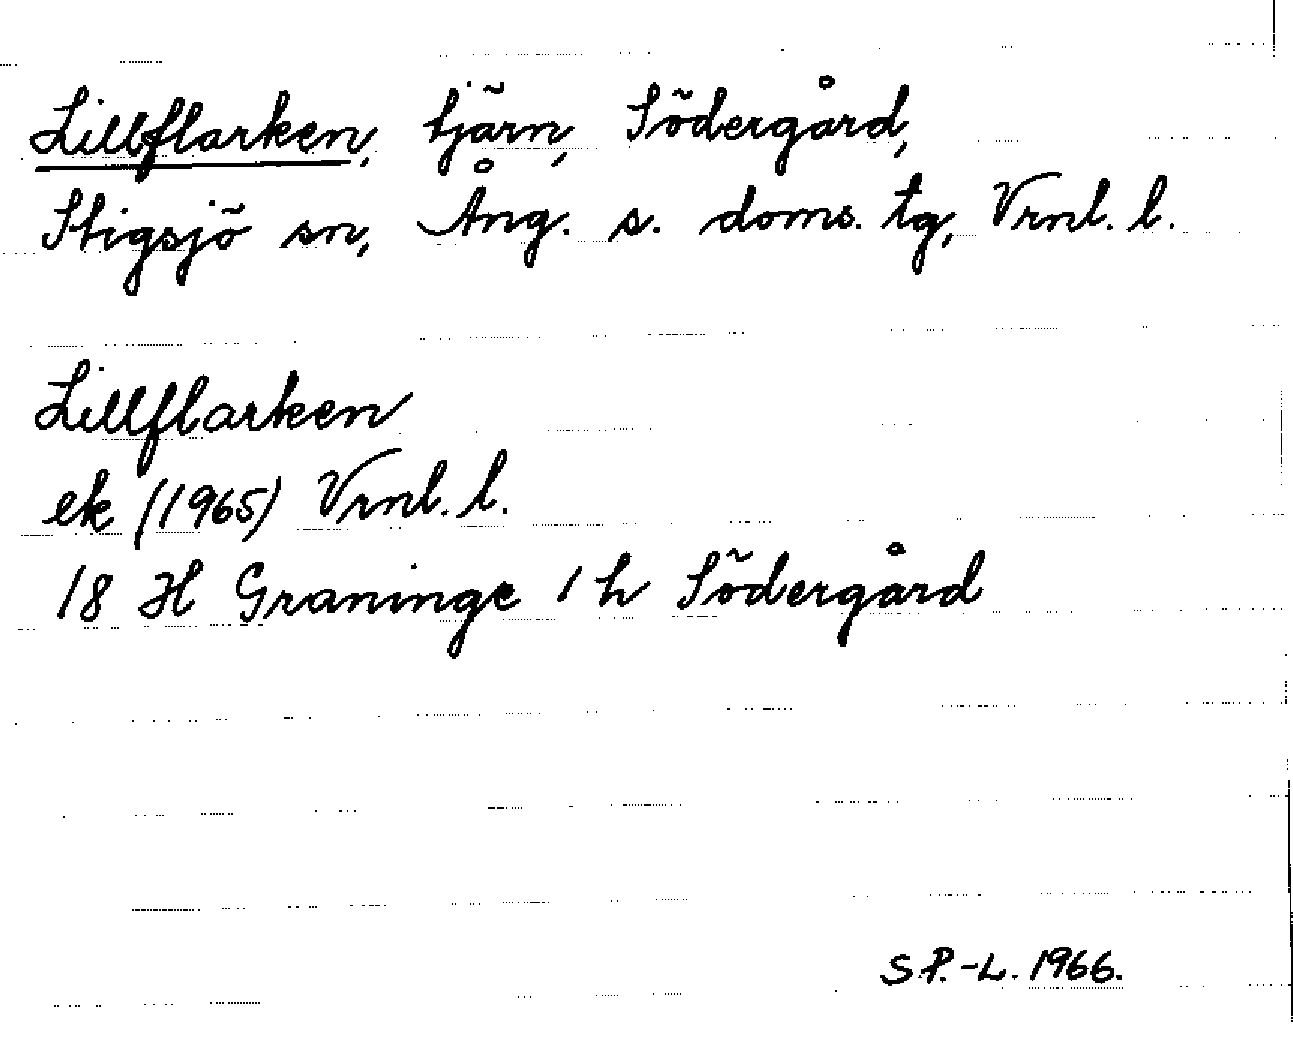 Lillflarken, tjärn, Södergård,
Stigsjö sn, Ång. s. doms. tg, Vrnl. l.
Lillflarken
ek (1965) Vrnl. l.
18 H Graninge 1 h Södergård
S.P.-L. 1966.